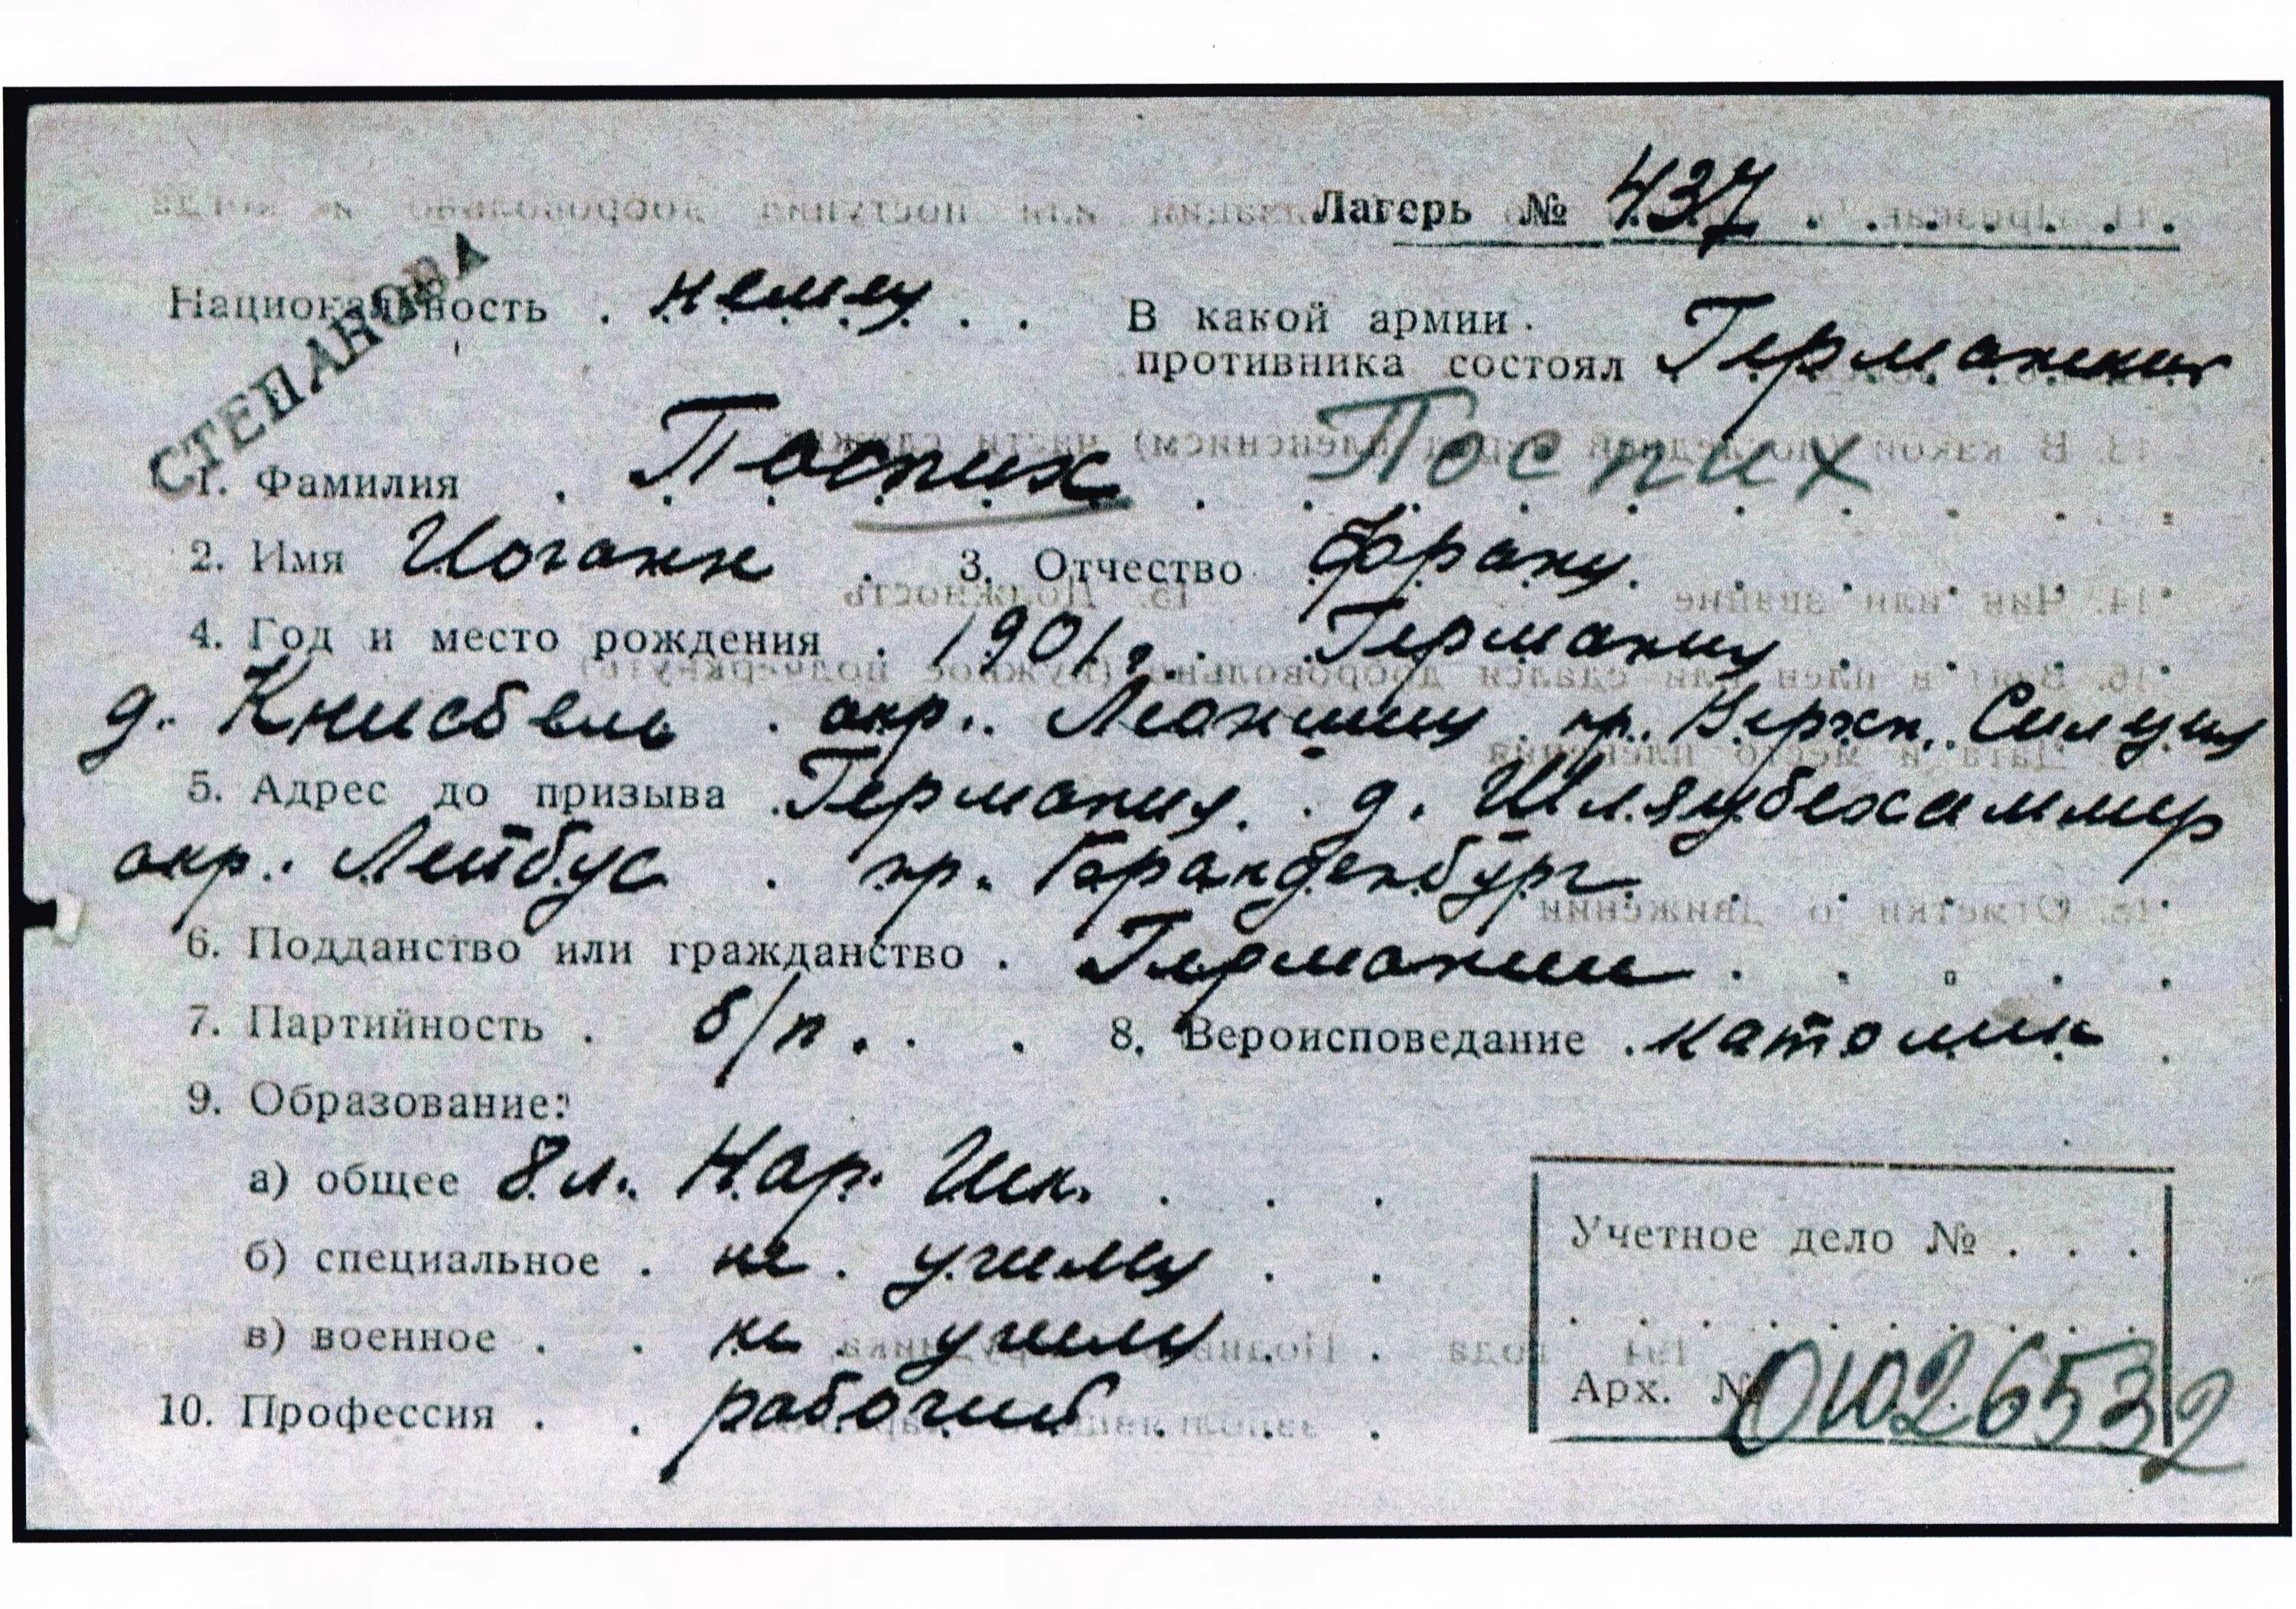 Лагерь № 437
СТЕПАНОВА
Национальность немец В какой армии
противника состоял Германской
1. Фамилия Поспих Поспих
2. Имя Иоганн 3. Отчество Франц
4. Год и место рождения 1901 г. Германия
д. окр. пр. Верхн. Силезия
5. Адрес до призыва Германия д.
окр. Лейбус пр. Бранденбург
6. Подданство или гражданство Германии
7. Партийность б/п. 8. Вероисповедание католик
9. Образование:
а) общее 8 л. Нар. Шк.
б) специальное не
в) военное не
10. Профессия рабочий
Учетное дело №
Арх. № 01026532